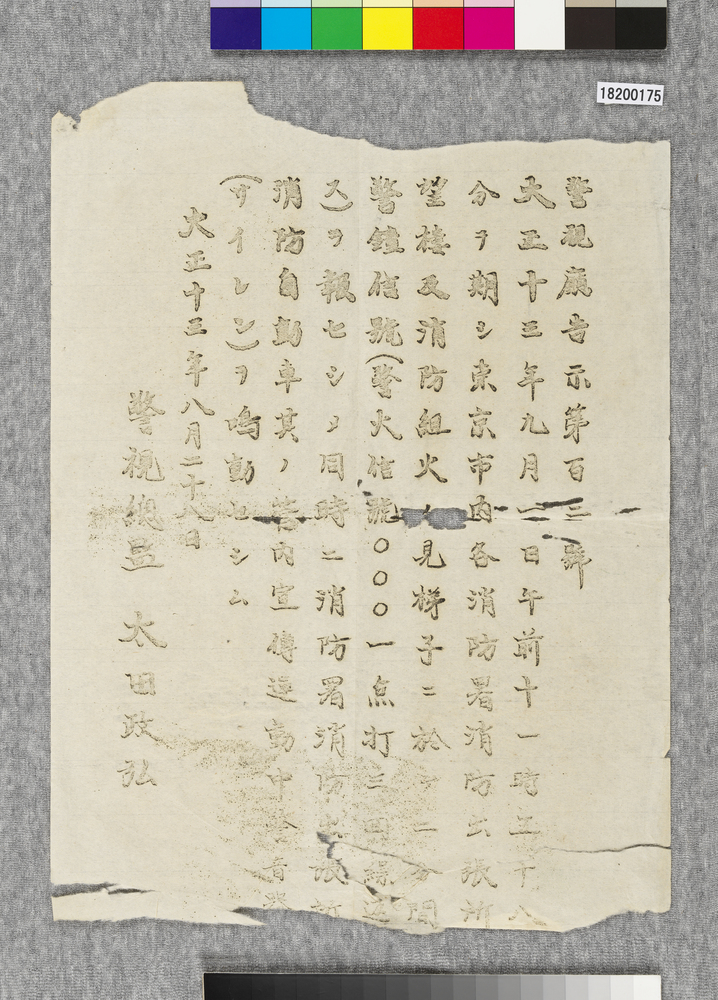 警視廳告示第百三號
大正十三年九月一日午前十一時五十八
分ヲ期シ東京市内各消防署消防出張所
望樓及消防組火ノ見梯子ニ於テ二分間
警鐘信號(警火信號〇〇〇一点打三回繰返
ス)ヲ報セシメ同時ニ消防署消防出張所
消防自動車其ノ 管内宣傳運動中 音
(サイレン)ヲ鳴動セシム
大正十三年八月二十八日
警視總監 太田政弘
18200175